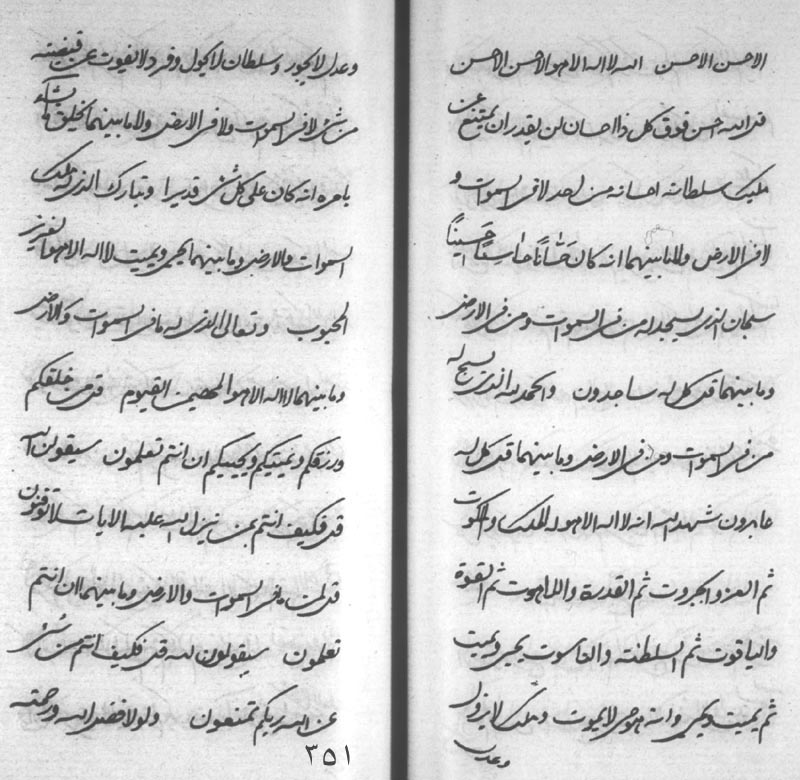 الاحسن الاحسن الله لا اله الا هو الاحسن الاحسن
قل الله احسن فوق كل ذا احسان لن يقدر ان يمتنع عن
مليك سلطان احسانه من احد لا فى السموات و
لا فى الارض ولا ما بينهما انه كان حَسّاناً حاسِناً حَسيناً
سبحان الذى يسجد له من فى السموات ومن فى الارض
وما بينهما قل كل له ساجدون والحمد لله الذى يسبح له
من فى السموات ومن فى الارض وما بينهما قل كل له
عابدون شهد الله انه لا اله الا هو له الملك والملكوت
ثم العز والجبروت ثم القدرة واللاهوت ثم القوة
والياقوت ثم السلطنة والناسوت يحيى ويميت
ثم يميت ويحيى وانه هو حى لا يموت وملك لا يزول
وعدل
وعدل لا يجور وسلطان لا يحول وفرد لا يفوت عن قبضته
من شئ لا فى السموات ولا فى الارض ولا ما بينهما يخلق ما يشاء
بامره انه كان على كل شئ قديرا وتبارك الذى له ملك
السموات والارض وما بينهما يحيى ويميت لا اله الا هو العزيز
المحبوب وتعالى الذى له ما فى السموات والارض
وما بينهما لا اله الا هو المهيمن القيوم قل من خلقكم
ورزقكم ويميتكم ويحييكم ان انتم تعلمون سيقولن الله
قل فكيف انتم بمن نيزل الله عليه الايات لا توقنون
قل لمن ما فى السموات والارض وما بينهما ان انتم
تعلمون سيقولون لله قل فكيف انتم من شئ
عن الله ربكم تمنعون ولولا فضل الله ورحمته
٣٥١